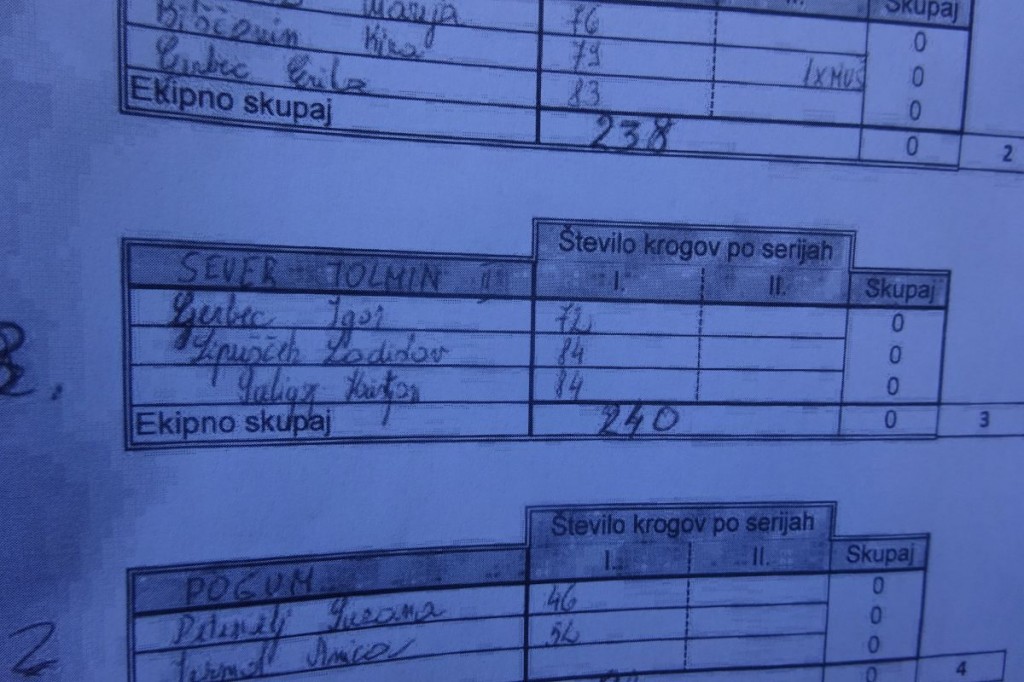 Marija 76 Skupaj
Kira 79 0
Gerbec Erika 83 1xMUŠ 0
0
Ekipno skupaj 238 0 2
Število krogov po serijah
SEVER TOLMIN II I. II. Skupaj
Gerbec Igor 72 0
3. Lipušček Ladislav 84 0
84 0
Ekipno skupaj 240 0 3
Število krogov po serijah
POGUM I. II. Skupaj
Suzana 46 0
2 Anica 54 0
0
0 4